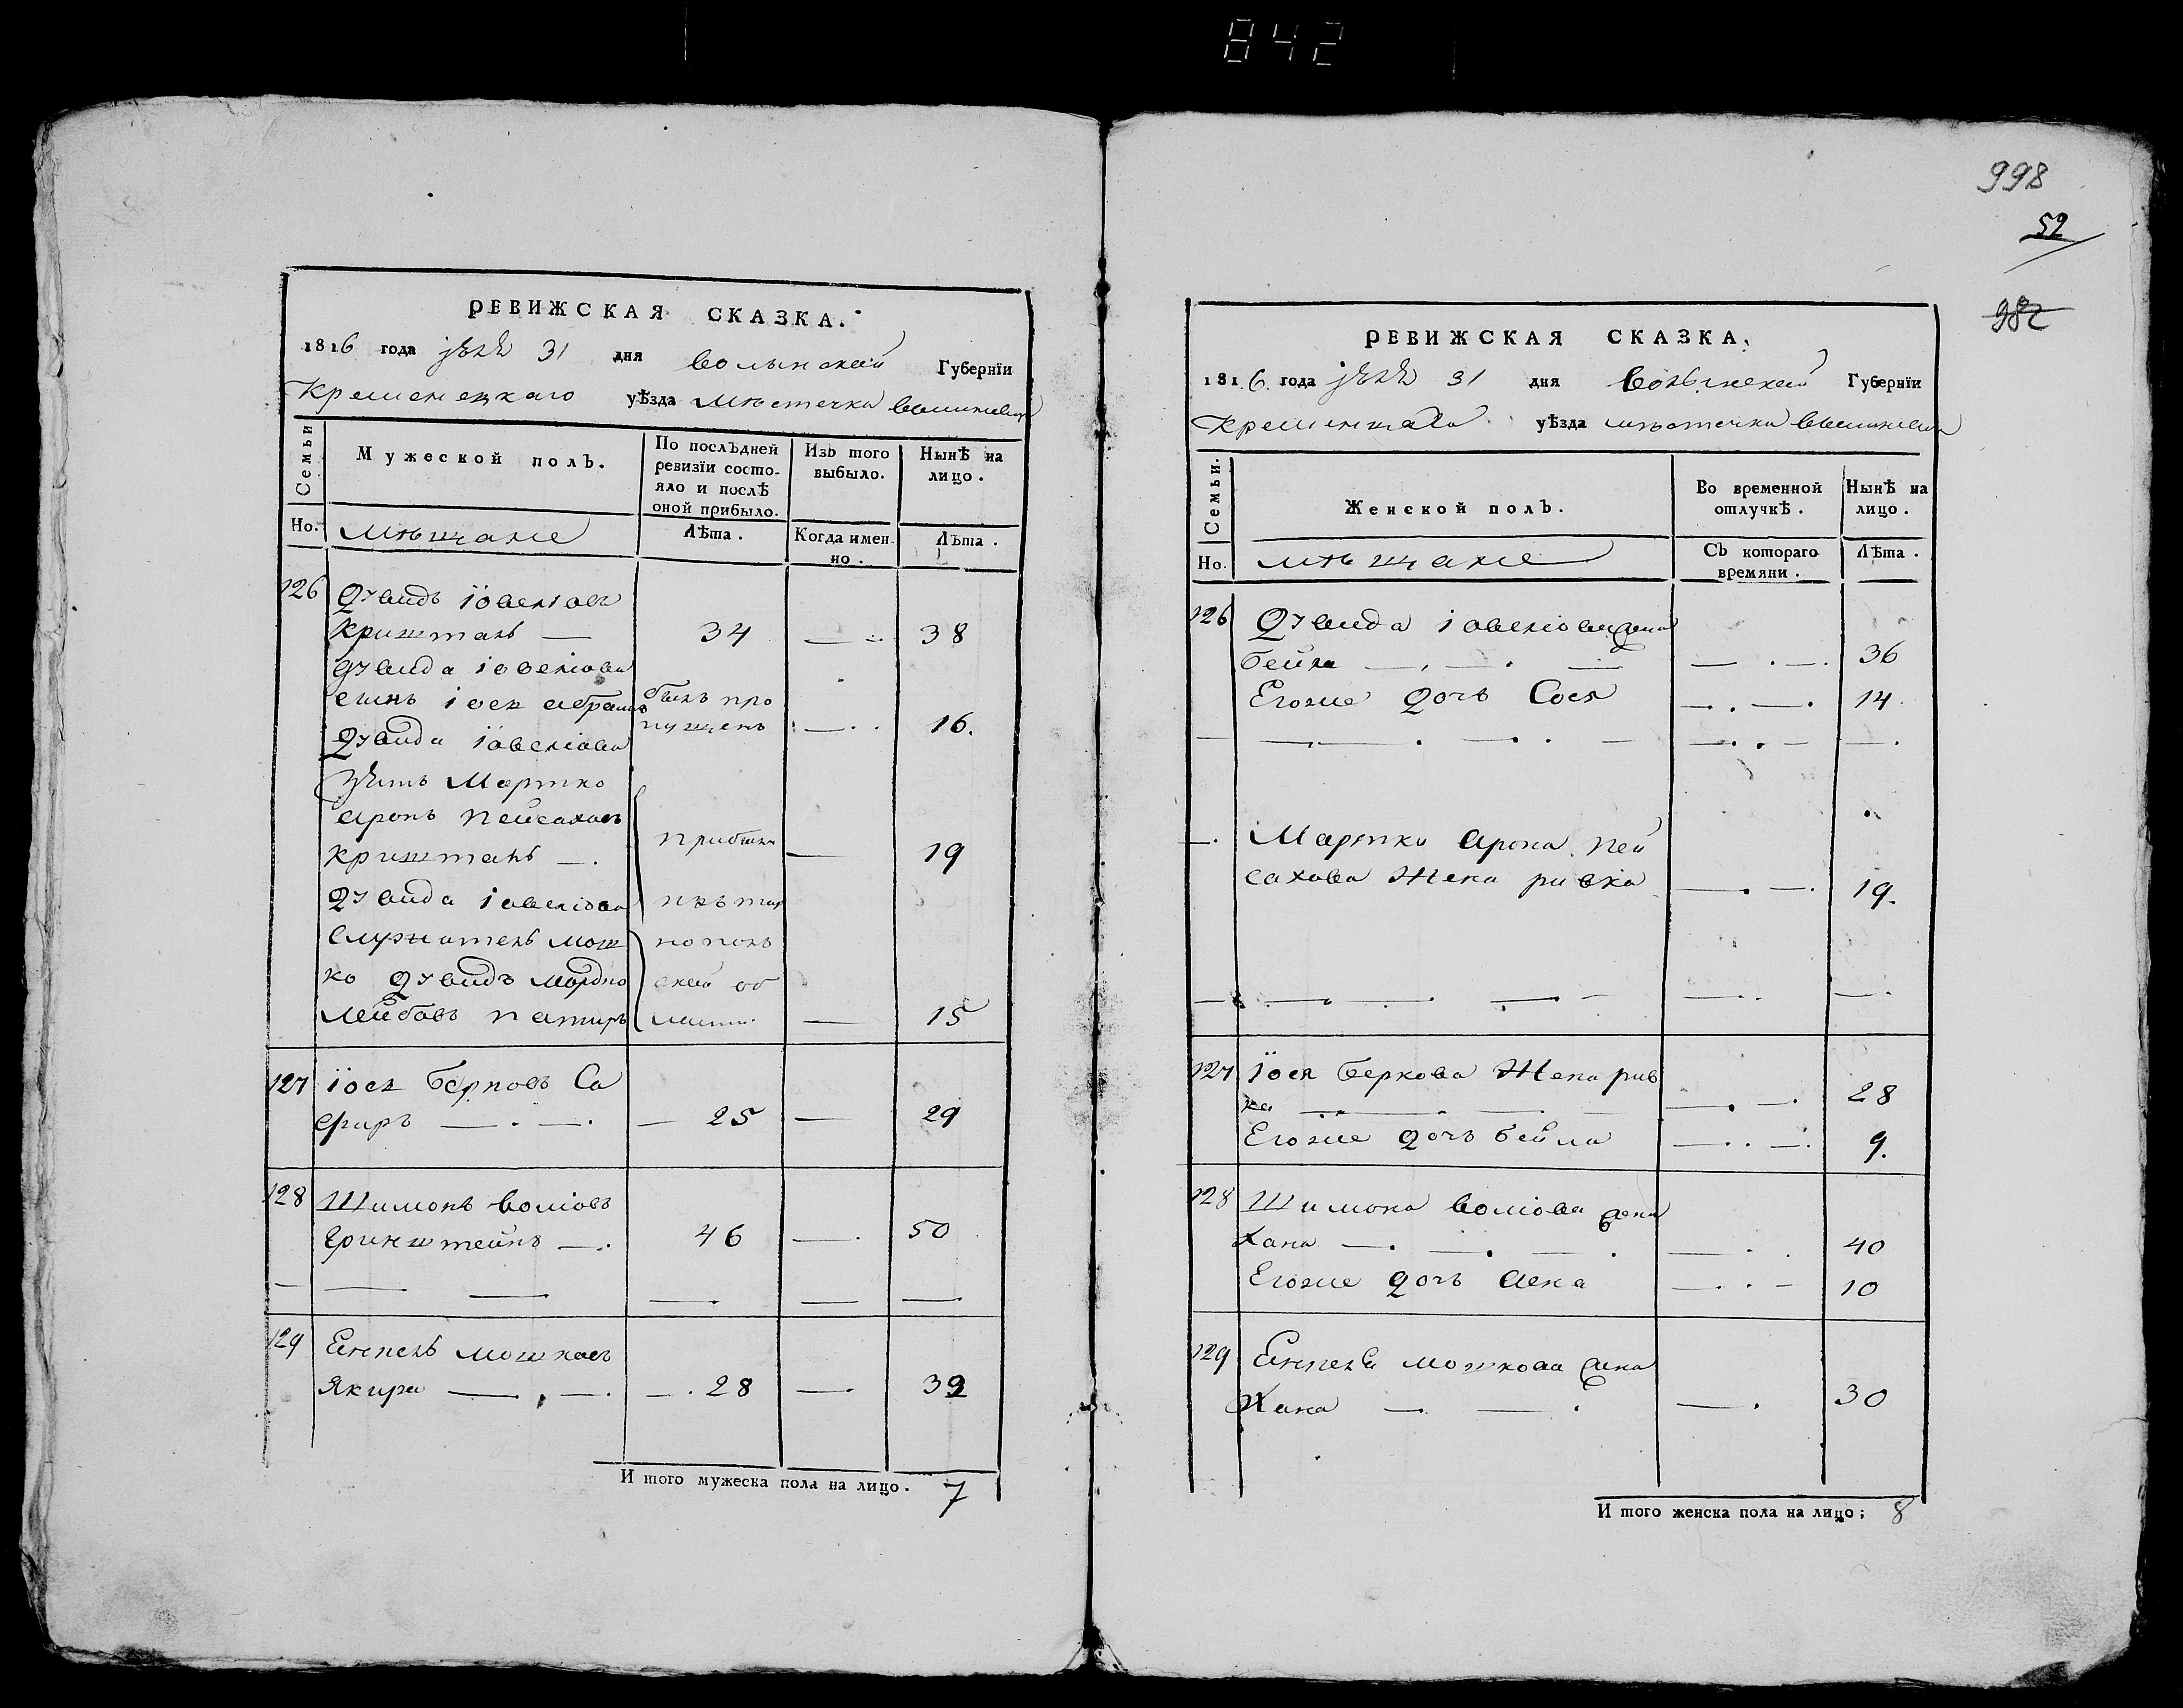 842
998
52
982
РЕВИЖСКАЯ СКАЗКА.
1816 года 31 дня Волынской Губернїи
Кременецкаго уѣзда Мѣстечка Вышневца
Семьи
Мужеской полъ.
По послѣдней ревизїи состояло и послѣ оной прибыло.
Изъ того выбыло.
Нынѣ на лицо.
Но.
мѣщане
Лѣта.
Когда именно.
Лѣта.
126 Дувидъ Іовелiовъ
Кришталь — 34 — 38
Дувида Іовелiова
сынъ Іосъ Абрамъ былъ про
пущенъ — 16.
Дувида Іовелiова
зять Мортко
Аронъ Пейсаховъ
Кришталь — прибыли — 19
Дувида Іовелiова
служитель Мош
ко Дувидъ Мордко
Лейбовъ — 15
127 Іось Берковъ Са
фиръ — 25 — 29
128 Шимонъ Волiовъ
Еринштейнъ — 46 — 50
129 Енпель Мошковъ
Якира — 28 — 32
И того мужеска пола на лицо. 7
РЕВИЖСКАЯ СКАЗКА.
1816. года 31 дня Волынской Губернїи
Кременецкаго уѣзда мѣстечка Вышневца
Семьи.
Женской полъ.
Во временной отлучкѣ.
Нынѣ на лицо.
Но.
мѣщане
Съ котораго времяни.
Лѣта.
126 Дувида Іовелiова жена
Бейла — 36
Егоже дочь Сося — 14
Мортки Арона Пей
сахова жена Ривка — 19.
127 Іося Беркова жена Рив
ка — 28
Егоже дочь Бейла — 9.
128 Шимона Волiова жена
Хана — 40
Егоже дочь — 10
129 Енпеля Мошкова жена
Хана — 30
И того женска пола на лицо; 8